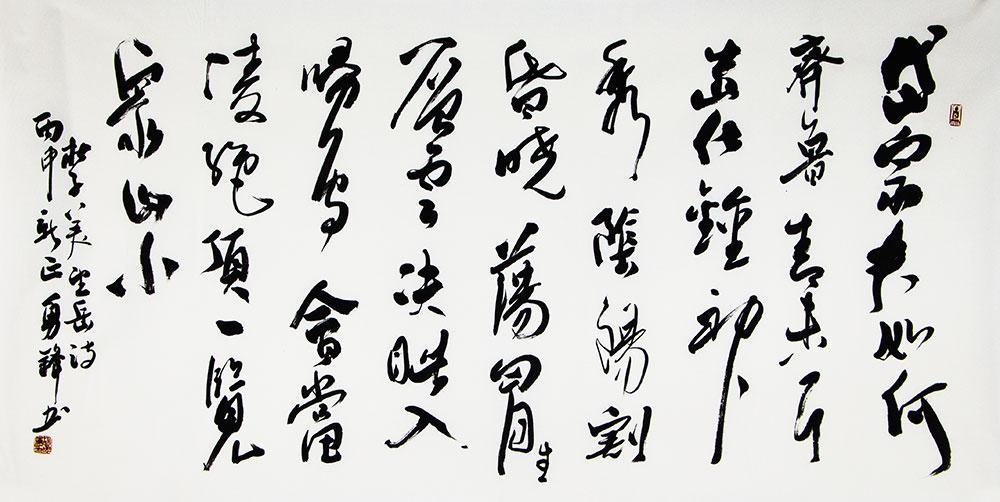 岱宗夫如何
齊魯青未了
造化鍾神
秀陰陽割
昏曉蕩胸生
層雲決眥入
歸鳥會當
凌絕頂一覽
衆山小
杜子美望岳詩
丙申新正勇書